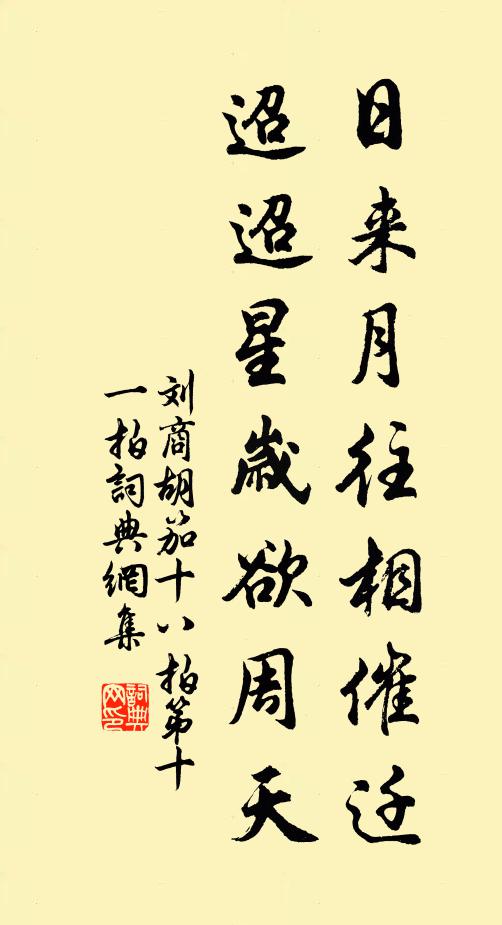 日来月往相催迁
迢迢星歲欲周天
刘商胡笳十八拍第十
一拍詞典網集
詞典網印